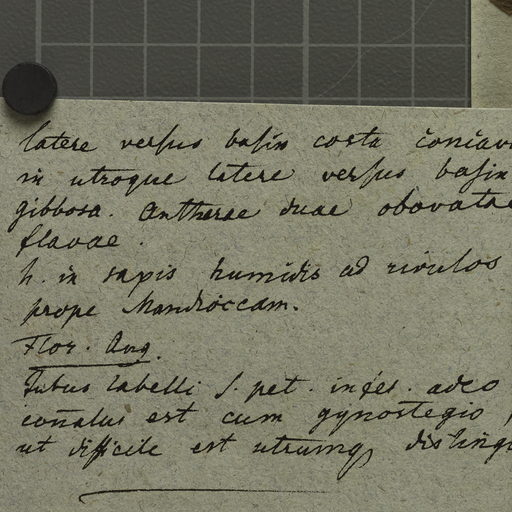 latere versus basin costa
in utroque latere versus basin
gibbosa. Antherae duae obovatae
flavae.
h. in rapis humidis ad rivulos
prope Mandioccam.
Flor. Aug.
Tubus labelli s. pet. infer. adeo
connatus est cum gynostegio,
ut difficile est utrumq